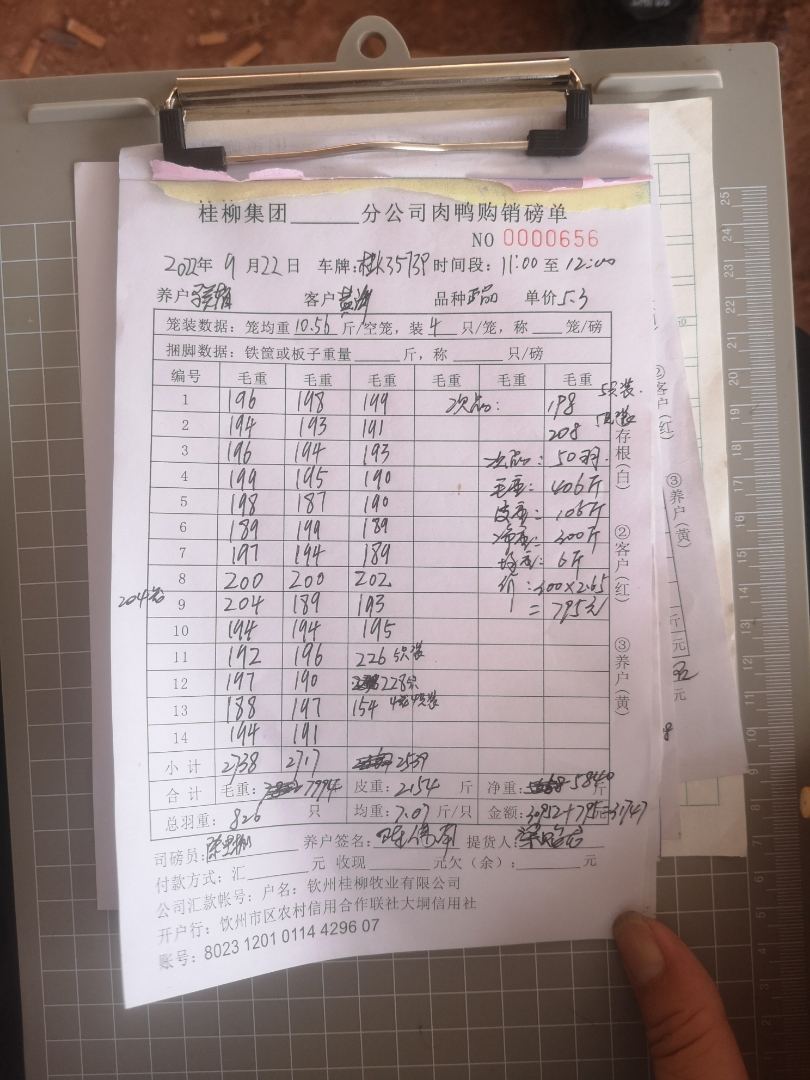 桂柳集团______分公司肉鸭购销磅单
NO 0000656
2022年 9月22日 车牌:桂K3573P 时间段:11:00 至 12:00
养户 客户 品种 正品 单价 5.3
笼装数据:笼均重10.56斤/空笼,装4只/笼,称___笼/磅
捆脚数据:铁筐或板子重量______斤,称_____只/磅
编号 毛重 毛重 毛重 毛重 毛重 毛重
1 196 198 199 次品: 198 5只装
2 194 193 191 208 5只装
3 196 194 193 次品: 50羽
4 199 195 190 毛重: 406斤
5 198 187 190 皮重: 106斤
6 189 199 189 净重: 300斤
7 197 194 189 均重: 6斤
8 200 200 202 价: 300×2.65
204只 9 204 189 193 = 795元
10 194 194 195
11 192 196 226 5只装
12 197 190 228
13 188 197 154
14 194 191
小计 2738 2717 2539
合计 毛重: 7994 皮重: 2154 斤 净重: 5840 斤
总羽重: 826 只 均重: 7.07 斤/只 金额: 30952+795=31747
司磅员: 养户签名: 提货人:
付款方式:汇______元 收现______元欠(余):______元
公司汇款帐号:户名:钦州桂柳牧业有限公司
开户行:钦州市区农村信用合作联社大垌信用社
账号:8023 1201 0114 4296 07
①存根(白) ②客户(红) ③养户(黄)
②客户(红) ③养户(黄)
斤
元
五
元
25
24
23
22
21
20
19
18
17
16
15
14
13
12
11
10
9
8
7
6
5
4
3
2